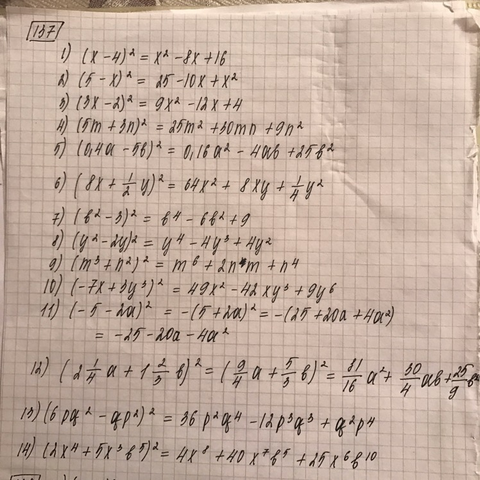 137
1) (x - 4)² = x² - 8x + 16
2) (5 - x)² = 25 - 10x + x²
3) (3x - 2)² = 9x² - 12x + 4
4) (5m + 3n)² = 25m² + 30mn + 9n²
5) (0,4a - 5в)² = 0,16a² - 4aв + 25в²
6) (8x + 1/2 y)² = 64x² + 8xy + 1/4 y²
7) (в² - 3)² = в⁴ - 6в² + 9
8) (y² - 2y)² = y⁴ - 4y³ + 4y²
9) (m³ + n²)² = m⁶ + 2n m + n⁴
10) (-7x + 3y³)² = 49x² - 42xy³ + 9y⁶
11) (-5 - 2a)² = -(5 + 2a)² = -(25 + 20a + 4a²)
= -25 - 20a - 4a²
12) (2 1/4 a + 1 2/3 в)² = (9/4 a + 5/3 в)² = 81/16 a² + 30/4 aв + 25/9 в²
13) (6pq² - qp²)² = 36p²q⁴ - 12p³q³ + q²p⁴
14) (2x⁴ + 5x³в⁵)² = 4x⁸ + 40x⁷в⁵ + 25x⁶в¹⁰